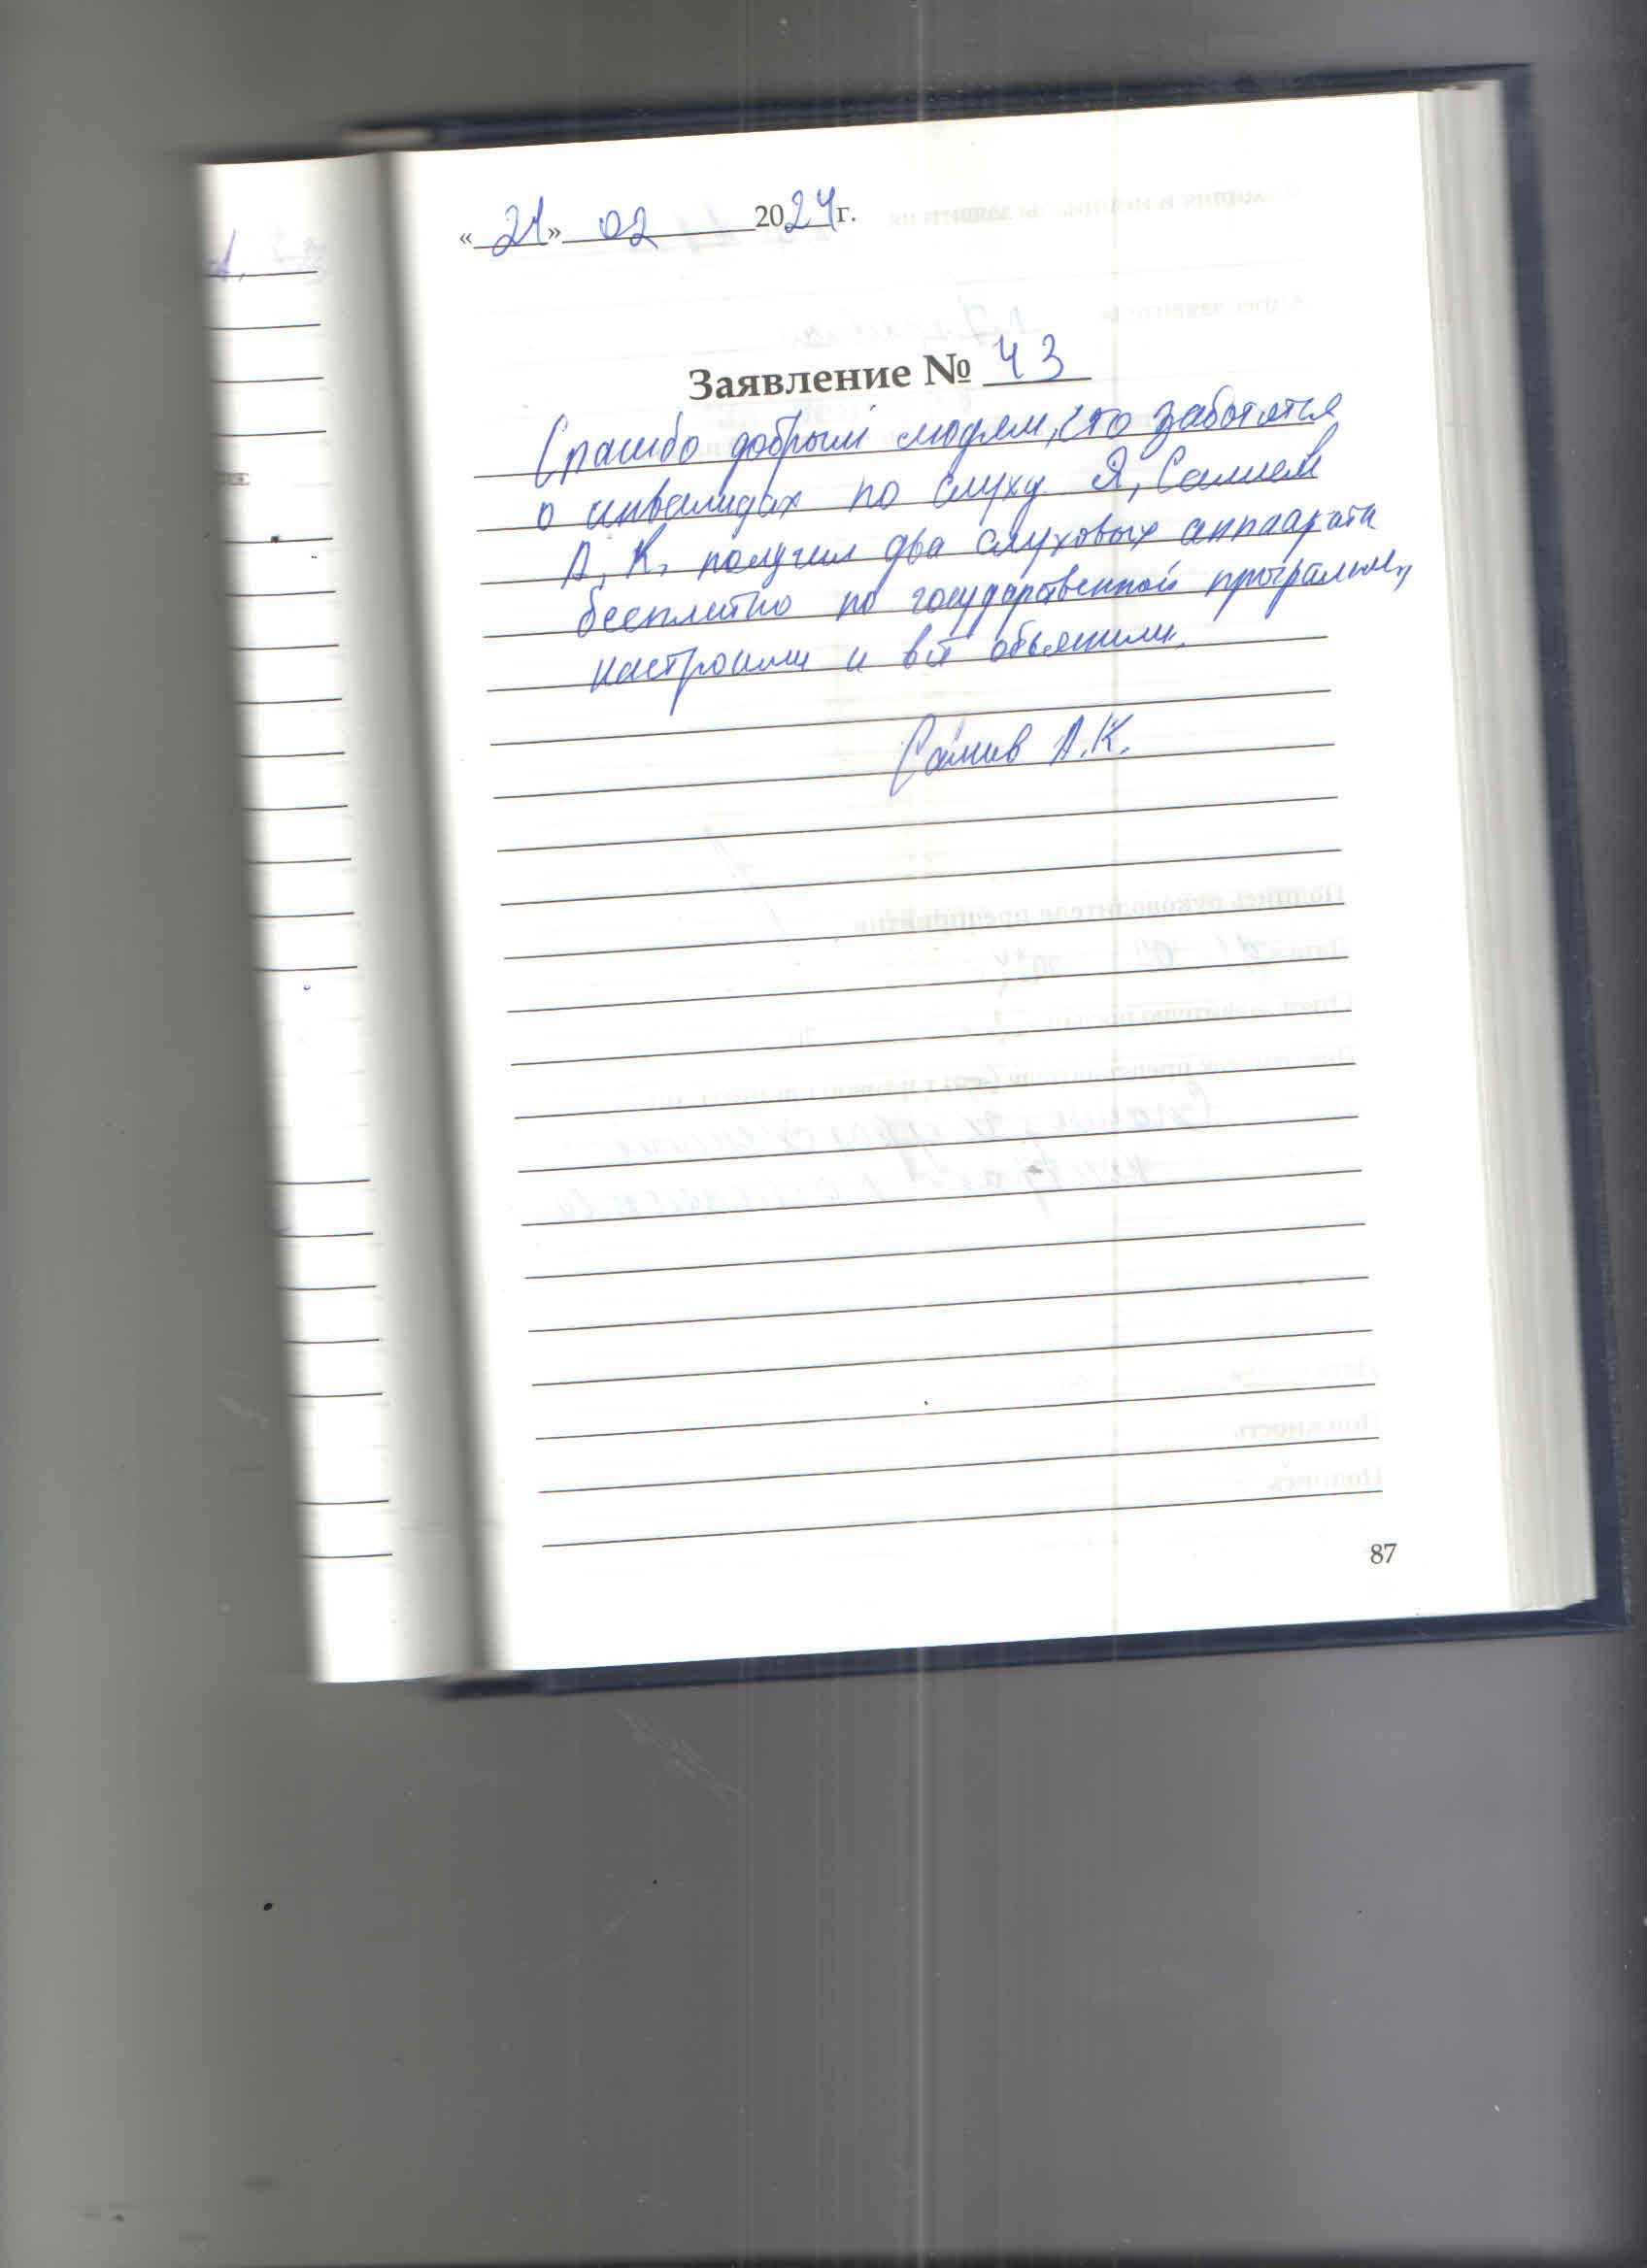 «21» 02 2024 г.
Заявление № 43
Спасибо добрым людям, что заботятся
о инвалидах по слуху. Я,
А. К. получил два слуховых аппарата
бесплатно по государственной программе,
настроили и всё объяснили.
А.К.
87